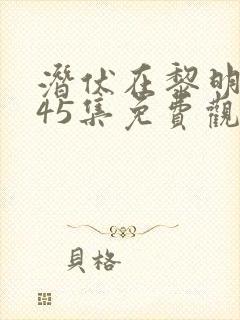 潛伏在黎明
45集免費觀
貝格